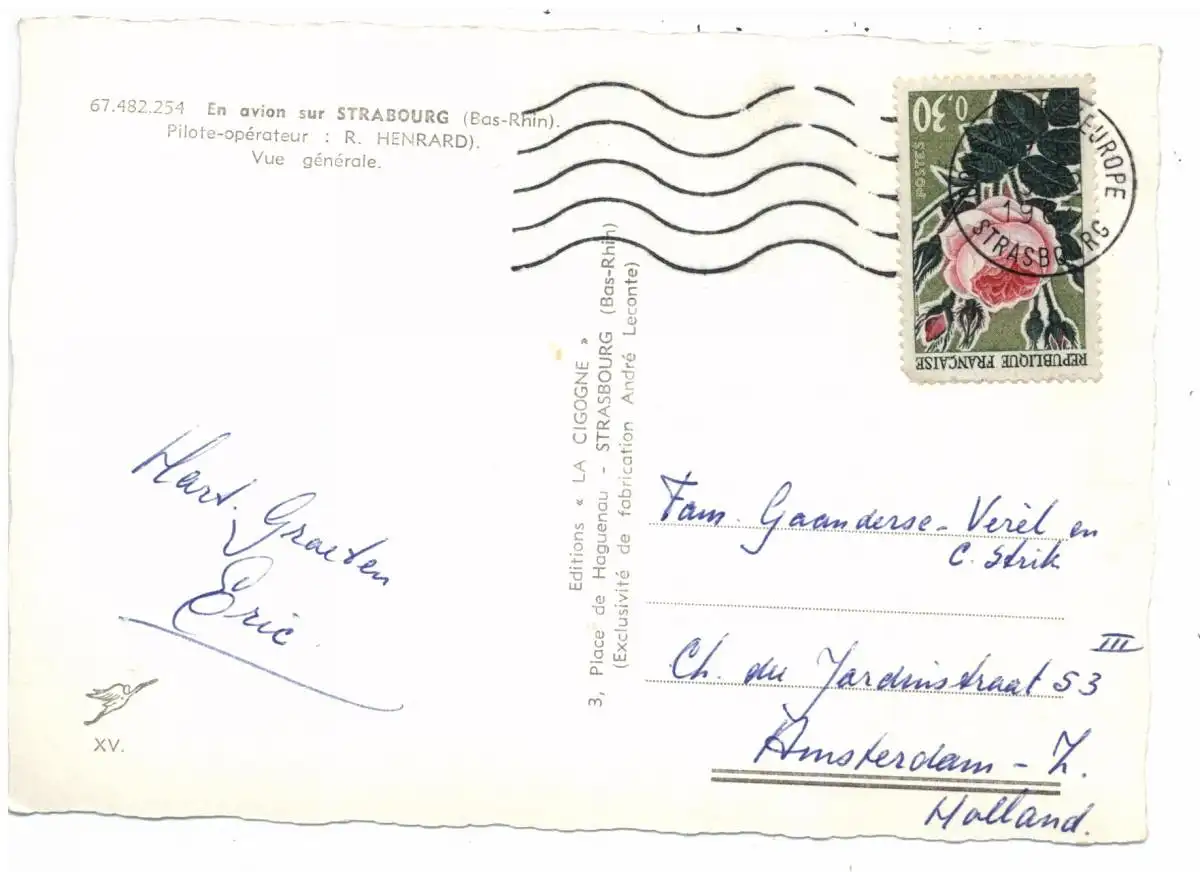 67.482.254 En avion sur STRABOURG (Bas-Rhin).
Pilote-opérateur : R. HENRARD).
Vue générale.
0,30
POSTES
REPUBLIQUE FRANÇAISE
EUROPE
19
STRASBOURG
Editions « LA CIGOGNE »
3, Place de Haguenau - STRASBOURG (Bas-Rhin)
(Exclusivité de fabrication André Leconte)
Hart. Groeten
Eric
XV.
Fam. Gaanderse-Verèl en
C. Strik
Ch. du Jardinstraat 53 III
Amsterdam - Z.
Holland.